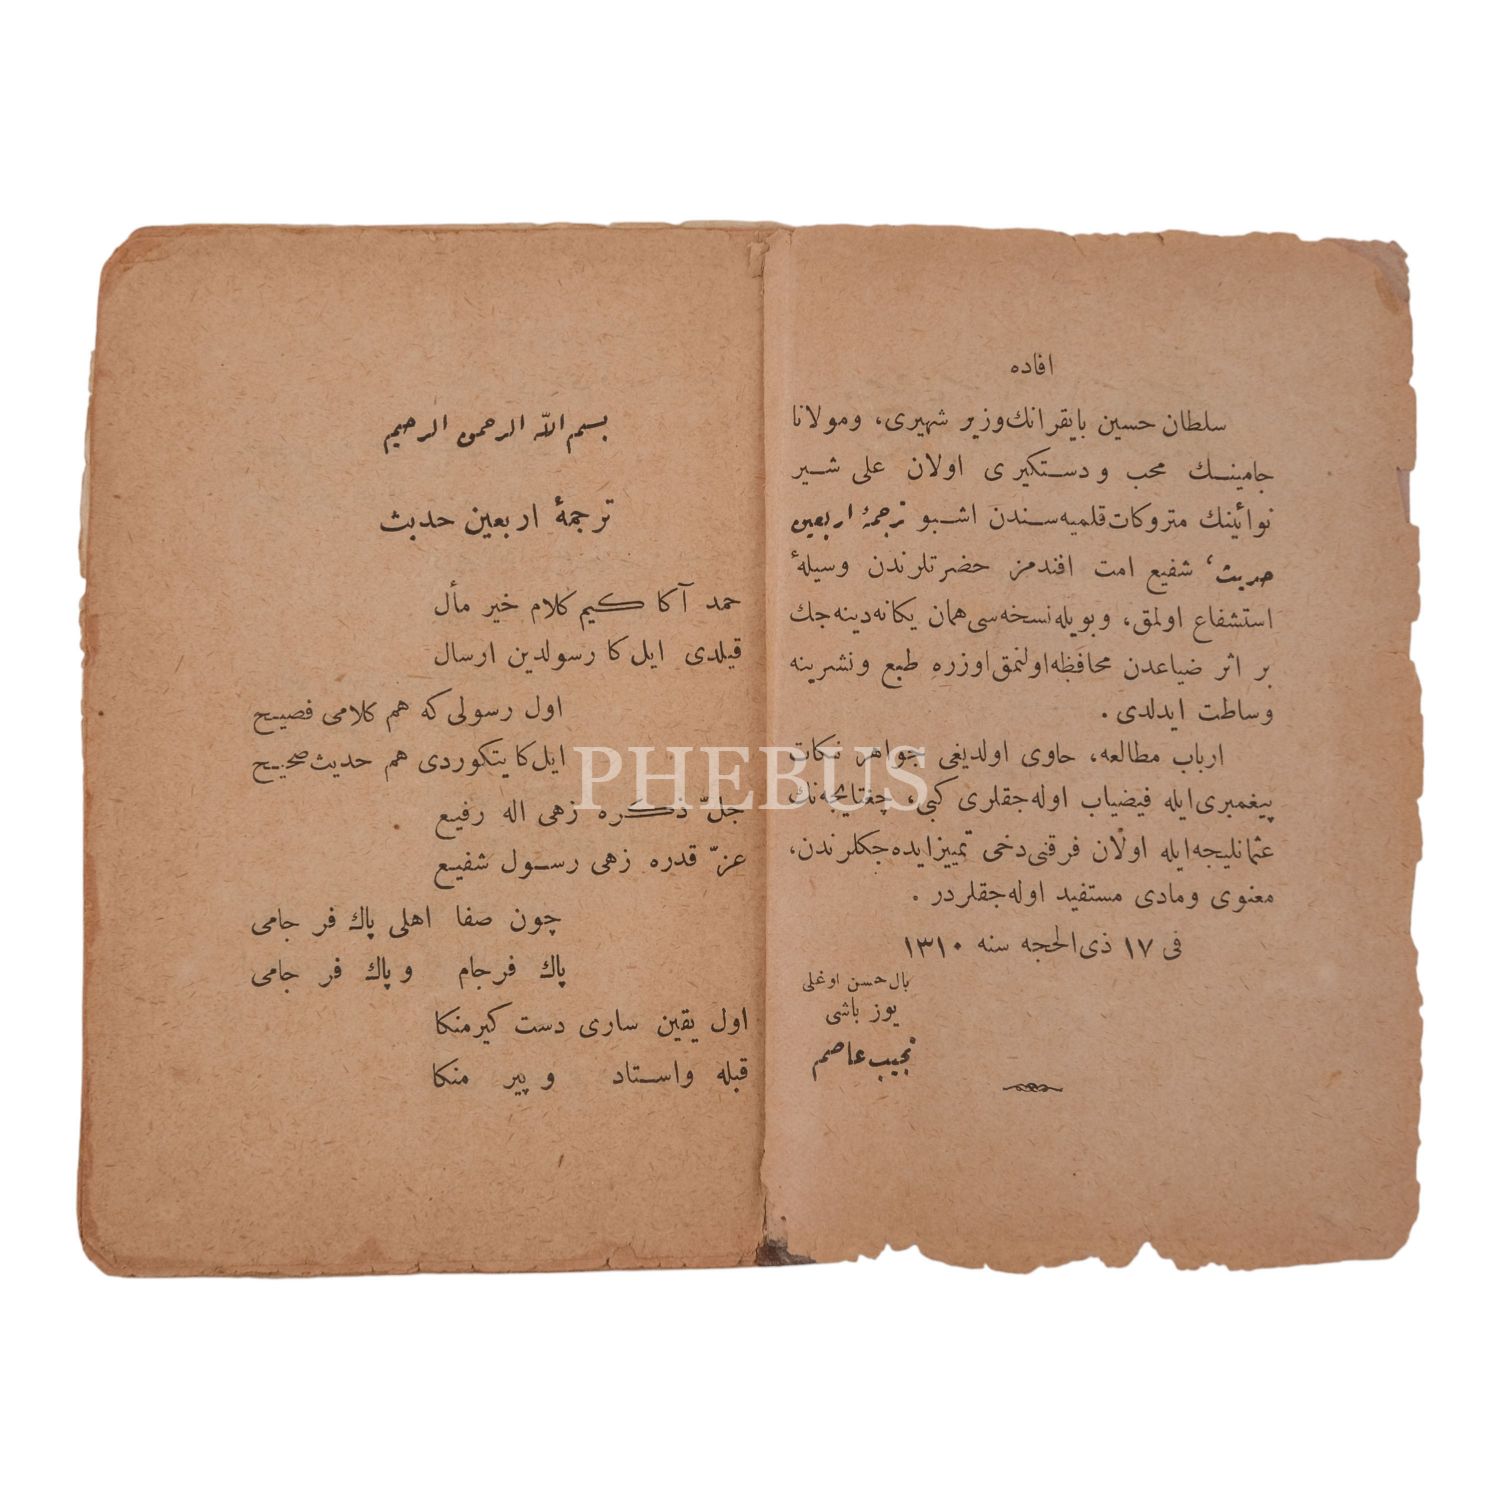 افاده
سلطان حسین بایقرانك وزیر شهیری، ومولانا
جامینك محب ودستكیری اولان علی شیر
نوائینك متروكات قلمیه‌سندن اشبو ترجمۀ اربعین
حدیث، شفیع امت افندمز حضرتلرندن وسیلۀ
استشفاع اولمق، وبویله نسخه‌سی همان یكانه دینه‌جك
بر اثر ضیاعدن محافظه اولنمق اوزره طبع ونشرینه
وساطت ایدلدی .
ارباب مطالعه، حاوی اولدیغی جواهر نكات
پیغمبری ایله فیضیاب اوله‌جقلری كبی، چغتایجه‌نك
عثمانلیجه ایله اولان فرقنی دخی تمییز ایده‌جكلرندن،
معنوی ومادی مستفید اوله‌جقلردر .
فی ١٧ ذی الحجه سنه ١٣١٠
بال حسن اوغلی
یوز باشی
نجیب عاصم
بسم الله الرحمن الرحیم
ترجمۀ اربعین حدیث
حمد آكا كیم كلام خیر مأل
قیلدی ایل كا رسولدین ارسال
اول رسولی كه هم كلامی فصیح
ایل كا یتكوردی هم حدیث صحیح
جلّ ذكره زهی اله رفیع
عزّ قدره زهی رسول شفیع
چون صفا اهلی پاك فر جامی
پاك فرجام وپاك فر جامی
اول یقین ساری دست كیر منكا
قبله واستاد وپیر منكا
PHEBUS